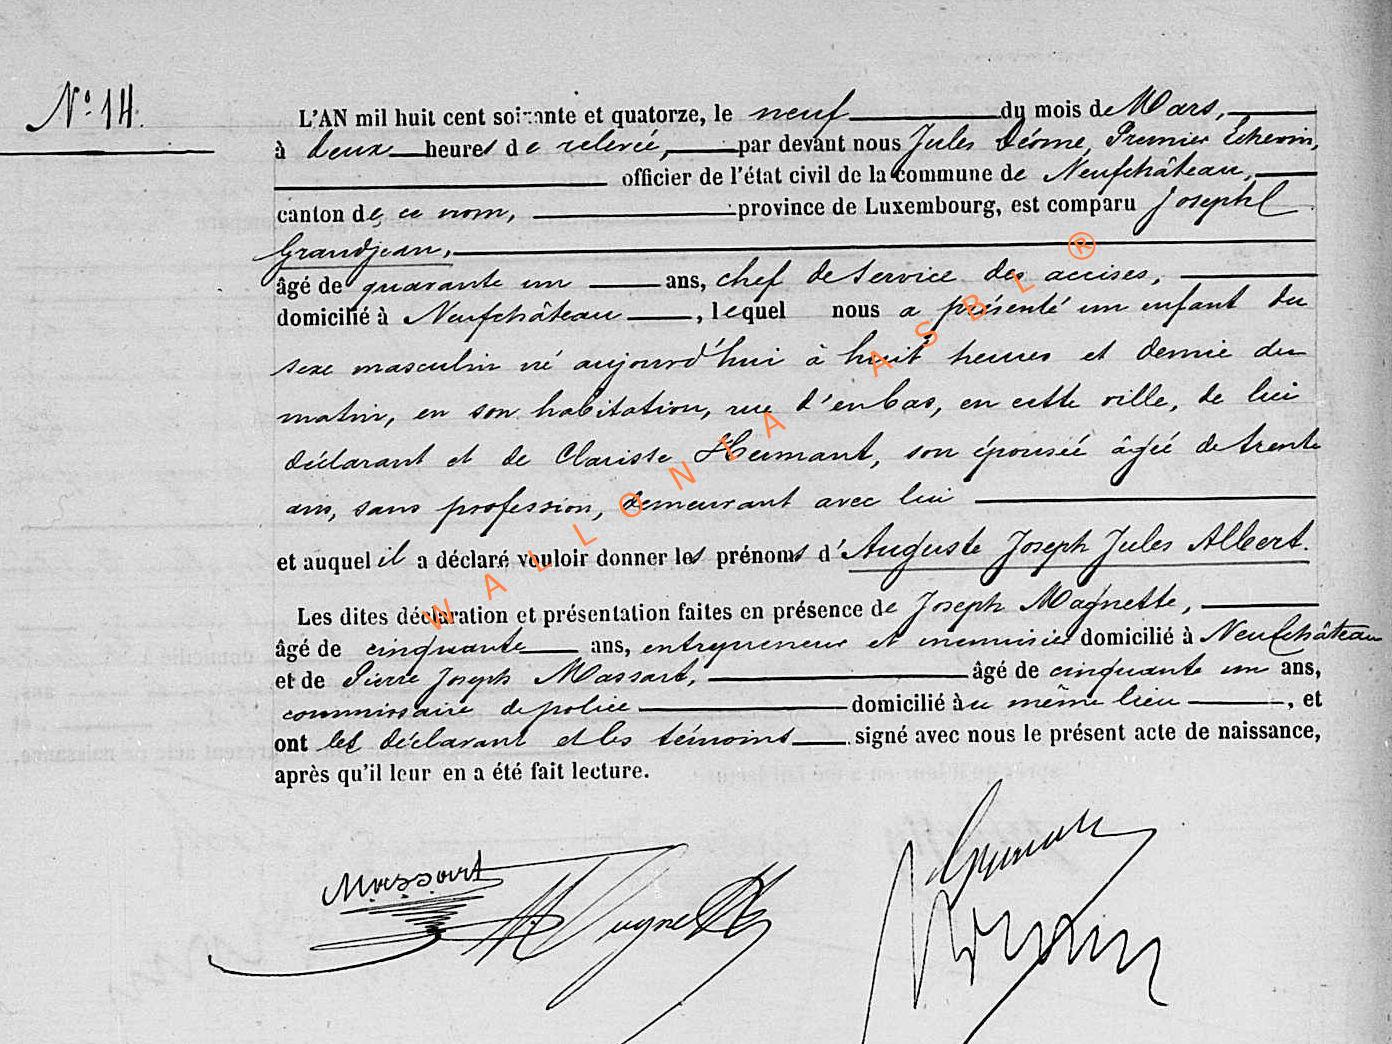 N° 14.
L'AN mil huit cent soixante et quatorze, le neuf du mois de Mars,
à deux heures de relevée, par devant nous Jules Déome, Premier Echevin,
officier de l'état civil de la commune de Neufchâteau,
canton de ce nom, province de Luxembourg, est comparu Joseph
Grandjean,
âgé de quarante un ans, chef de service des accises,
domicilié à Neufchâteau, lequel nous a présenté un enfant du
sexe masculin né aujourd'hui à huit heures et demie du
matin, en son habitation, rue d'enbas, en cette ville, de lui
déclarant et de Clariste Hermant, son épouse âgée de trente
ans, sans profession, demeurant avec lui
et auquel il a déclaré vouloir donner les prénoms d'Auguste Joseph Jules Albert.
Les dites déclaration et présentation faites en présence de Joseph Magnette,
âgé de cinquante ans, entrepreneur et menuisier domicilié à Neufchâteau
et de Pierre Joseph Massart, âgé de cinquante un ans,
commissaire de police domicilié au même lieu, et
ont le déclarant et les témoins signé avec nous le présent acte de naissance,
après qu'il leur en a été fait lecture.
WALLONIA ASBL ®
Massart
Magnette